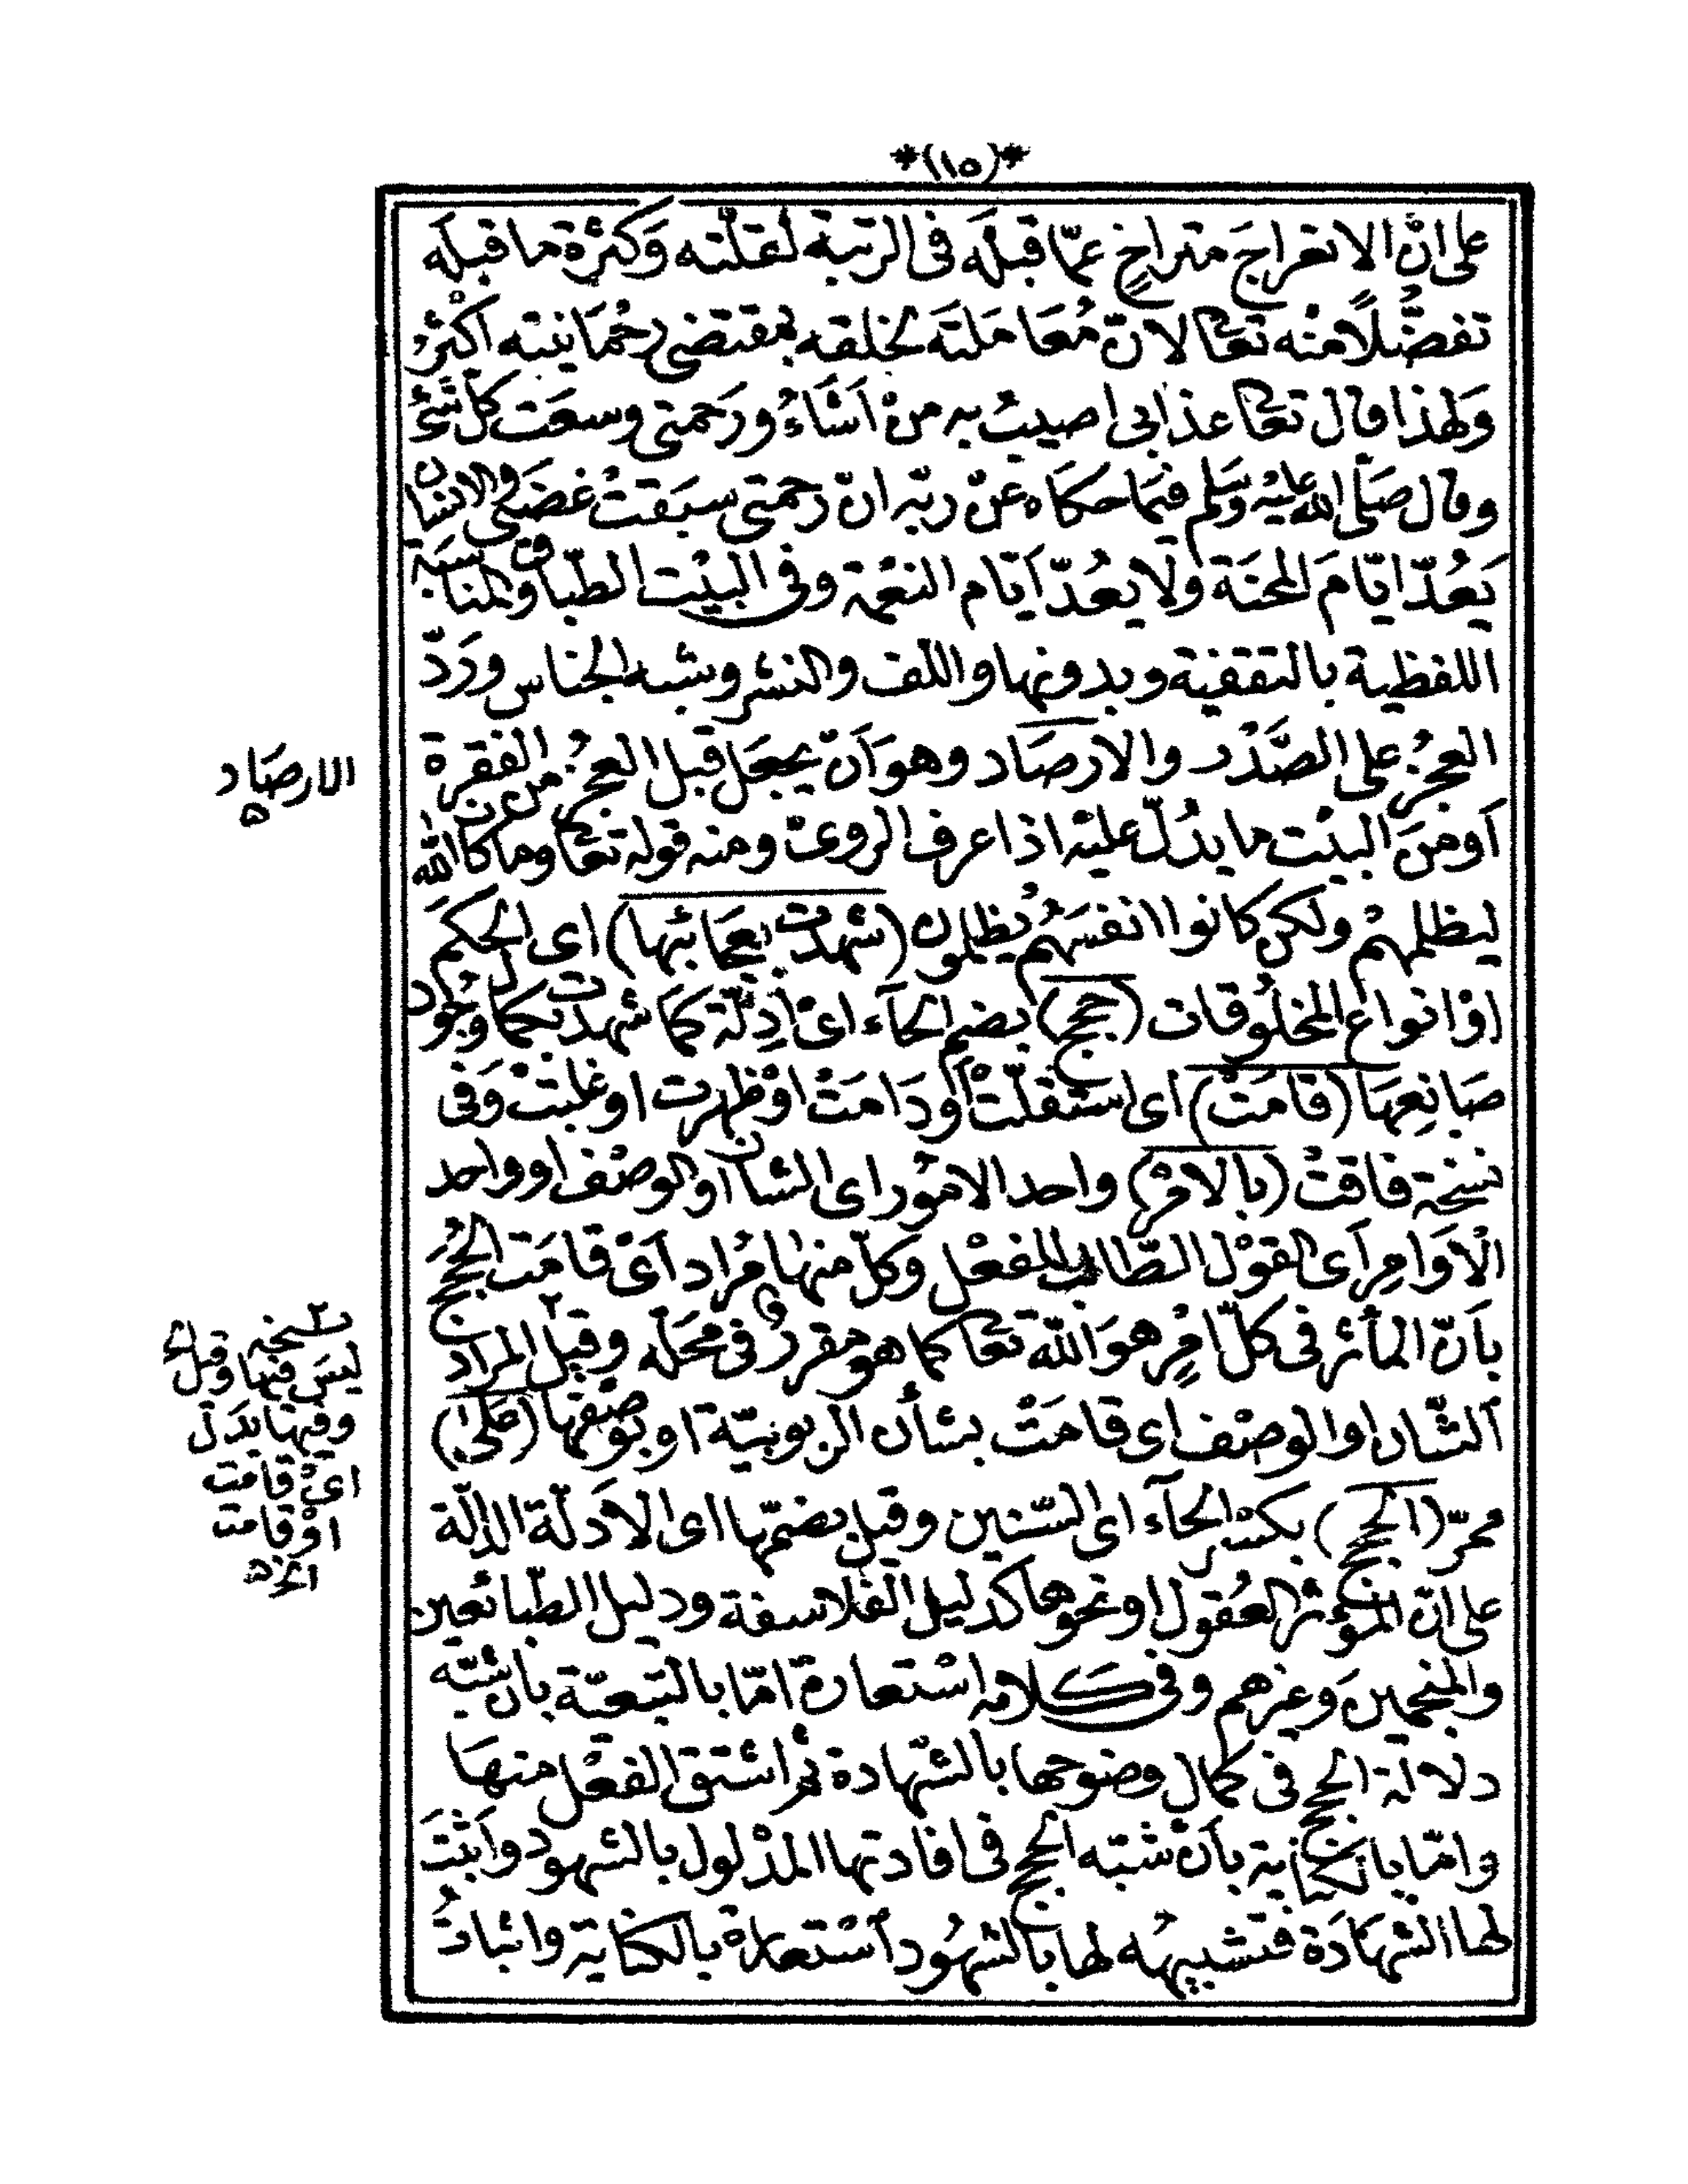 *(١٥)*
على انّ الانفراجَ متراخٍ عمّا قبلَه فى الرتبة لقلّته وَكثرة ما قبلَه
تفضُّلًا منْه تعالى لانّ مُعَامَلتَه لخلقه بمقتضى رحْمَانيته اكثرُ
وَلهذا قال تعالى عذابى اصيبُ به منْ اَشَاءُ ورَحمتى وسعَت كلّ شئ
وقال صَلّى الله عليْه وسَلم فيمَا حكاه عنْ ربّه انّ رحمتى سبَقتْ غضَبى والانسان
يَعُدّ ايّامَ المحنَة ولَا يعُدّ اَيّام النعْمة وفى البيْت الطّباق والمناسَبة
اللفظية بالتقفية وبدونها واللّف والنشر وشبه الجناس ورَدّ
العجزُ على الصَّدْر والارصَاد وهوَ اَنّ يجعَل قبل العجزُ من الفقرة
اَو منَ البيْت ما يدُلّ عليْه اذا عرف الروىّ ومنه قوله تعالى وما كان الله
ليظلمهمْ ولكن كانوا انفسَهُم يُظلمون (شهدت بعجَائبها) اى الحكَم
اوْ انواع المخلُوقات (حجج) بضم الحَآء اىْ اَدِلّة كما شهدت بكمال وجُود
صَانِعِهَا (قامَتْ) اى استقلّتْ اَو دَامَتْ اوْ ظهرت او غلبَتْ وَفى
نسْخة فاقتْ (بالامْر) واحد الامُور اى الشان او الوصْف او واحد
الْاَوَامِر اَى القوْل الطّالب للفعْل وَكلّ منهَا مُراد اَىْ قامَت الحُججُ
بِاَنّ المأثر فى كلّ امْرٍ هوَ الله تعالى كما هو مقررٌ فى محَلّه وقيل المراد
الشّان او الوصْف اى قامَتْ بشأن الربوبيّة او بوَصْفها (على)
محرّ (الحجج) بكسْر الحَآء اى السّنين وقيل بضمّها اى الادَلّة الدّالّة
على انّ المؤثر العُقول او نحوها كدليل الفلاسفة ودليل الطّبائعين
والمنجمينَ وَغيرهم وفى كلامه استعارة امّا بالتبعيّة بان شبّه
دلالة الحجج فى كمال وضوحها بالشّهادة ثم اشتق الفعْل منهَا
وامّا بالكناية بأنْ شبّه الحجج فى افادتها المدْلول بالشهود وَاثبَتَ
لها الشهَادَة فتشبيهُه لها بالشهُود استعارة بالكناية واثباتُ
الارصَاد
٢ نسخه
ليسَ فيها وقيل الخ
وفيهَا بدَلَ
اىْ قامت
اوْ قامت
الخ